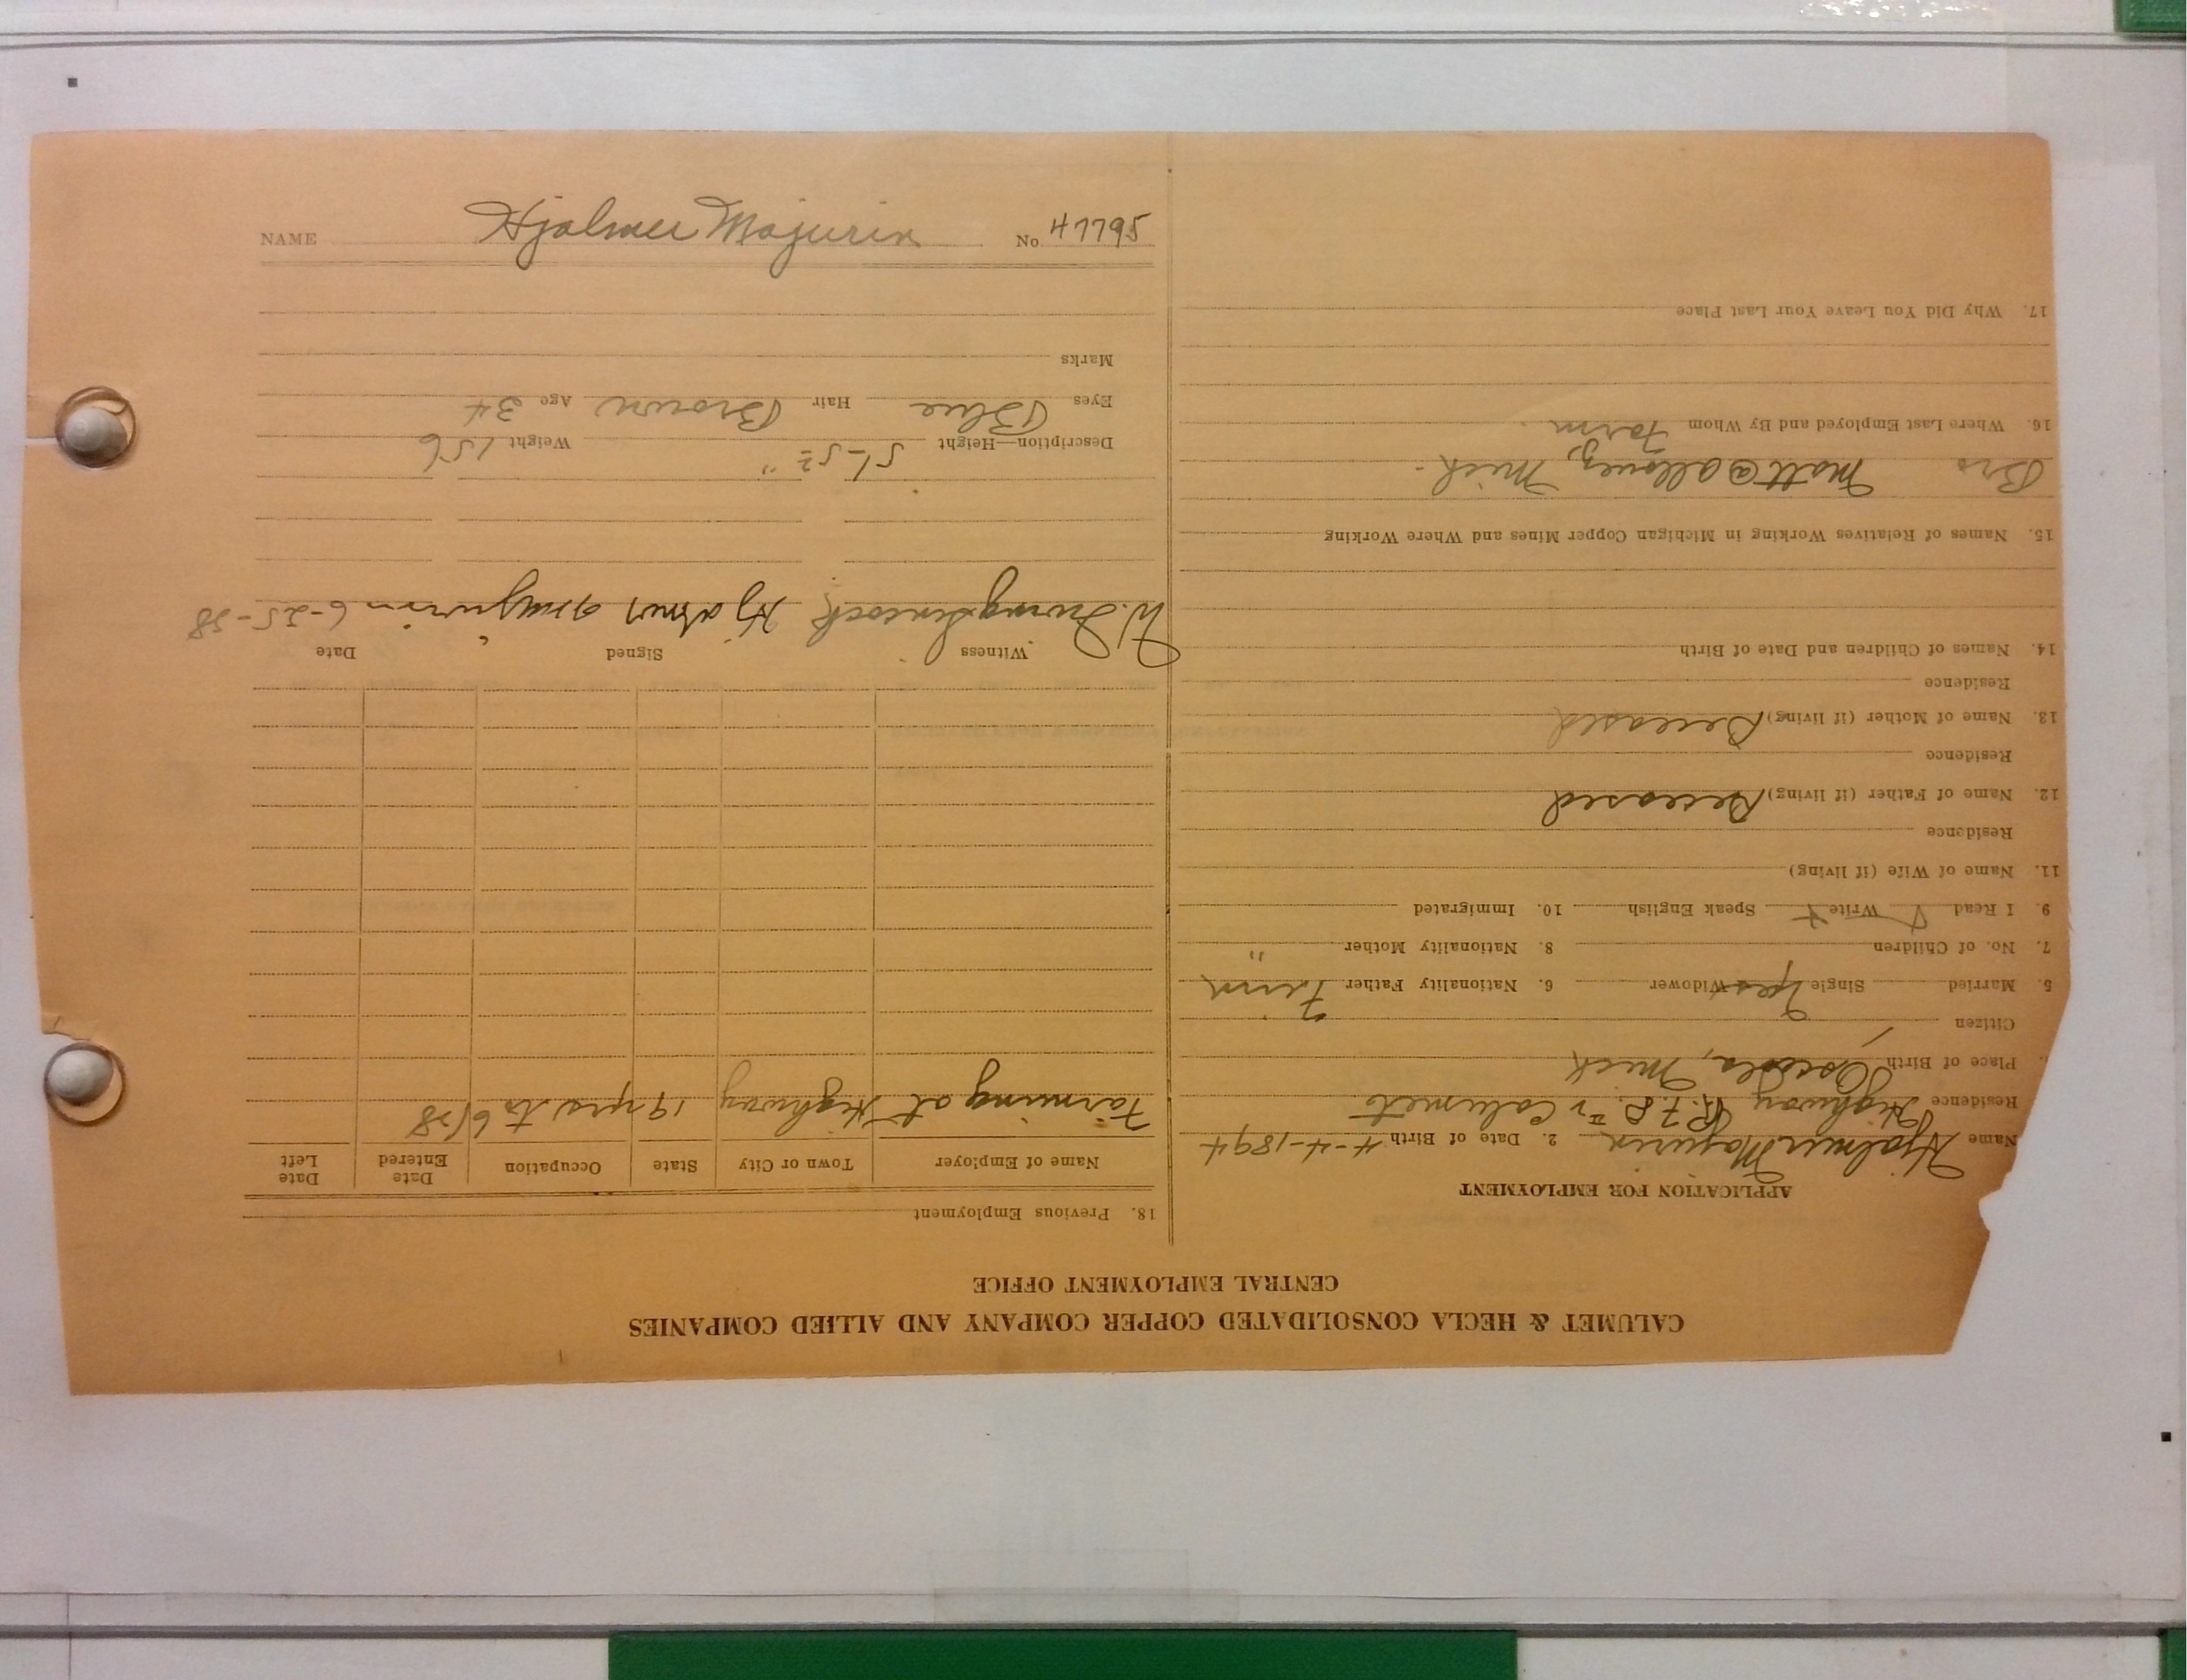 CALUMET & HECLA CONSOLIDATED COPPER COMPANY AND ALLIED COMPANIES
CENTRAL EMPLOYMENT OFFICE
APPLICATION FOR EMPLOYMENT
Name Hjalmer Majurin 2. Date of Birth 4-4-1894
Residence Highway R.F.D. #2 Calumet
Place of Birth Osceola, Mich
Citizen
5. Married Single Yes Widower 6. Nationality Father Finn
7. No. of Children 8. Nationality Mother "
9. I Read Write Speak English 10. Immigrated
11. Name of Wife (if living)
Residence
12. Name of Father (if living) Deceased
Residence
13. Name of Mother (if living) Deceased
Residence
14. Names of Children and Date of Birth
15. Names of Relatives Working in Michigan Copper Mines and Where Working
Bro Matt @ Allouez, Mich.
16. Where Last Employed and By Whom Farm
17. Why Did You Leave Your Last Place
18. Previous Employment
Name of Employer Town or City State Occupation Date Entered Date Left
Farming at Highway 19 yrs to 6/38
Witness Signed Date
W. Hjalmer Majurin 6-25-38
Description—Height 5'-5½" Weight 156
Eyes Blue Hair Brown Age 34
Marks
NAME Hjalmer Majurin No 47795